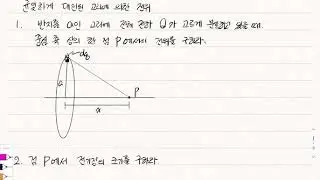 균일하게 대전된 고리에 의한 전위
1. 반지름 a인 고리에 전체 전하 Q가 고르게 분포하고 있을 때.
중심 축 상의 한 점 P에서의 전위를 구하라.
dq
a
P
x
2. 점 P에서 전기장의 크기를 구하라.